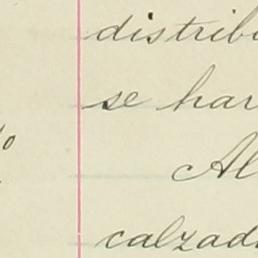 distribu
se har
Al
calzad